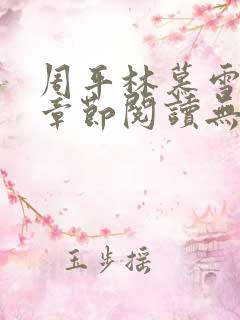 周平林慕雪
章節閱讀無
玉步搖